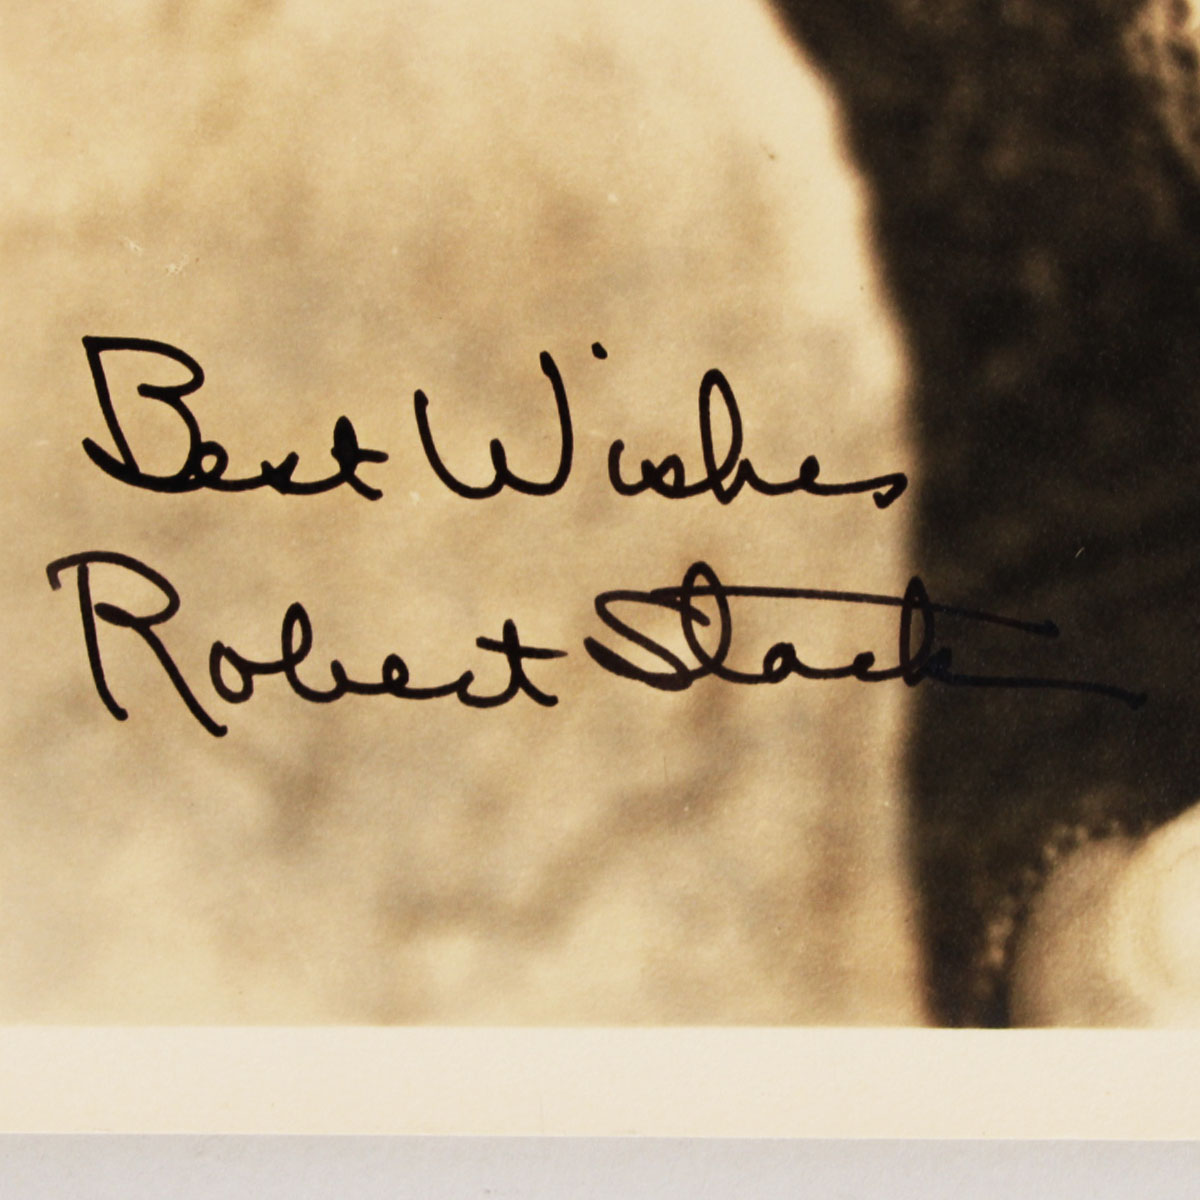 Best Wishes
Robert Stack